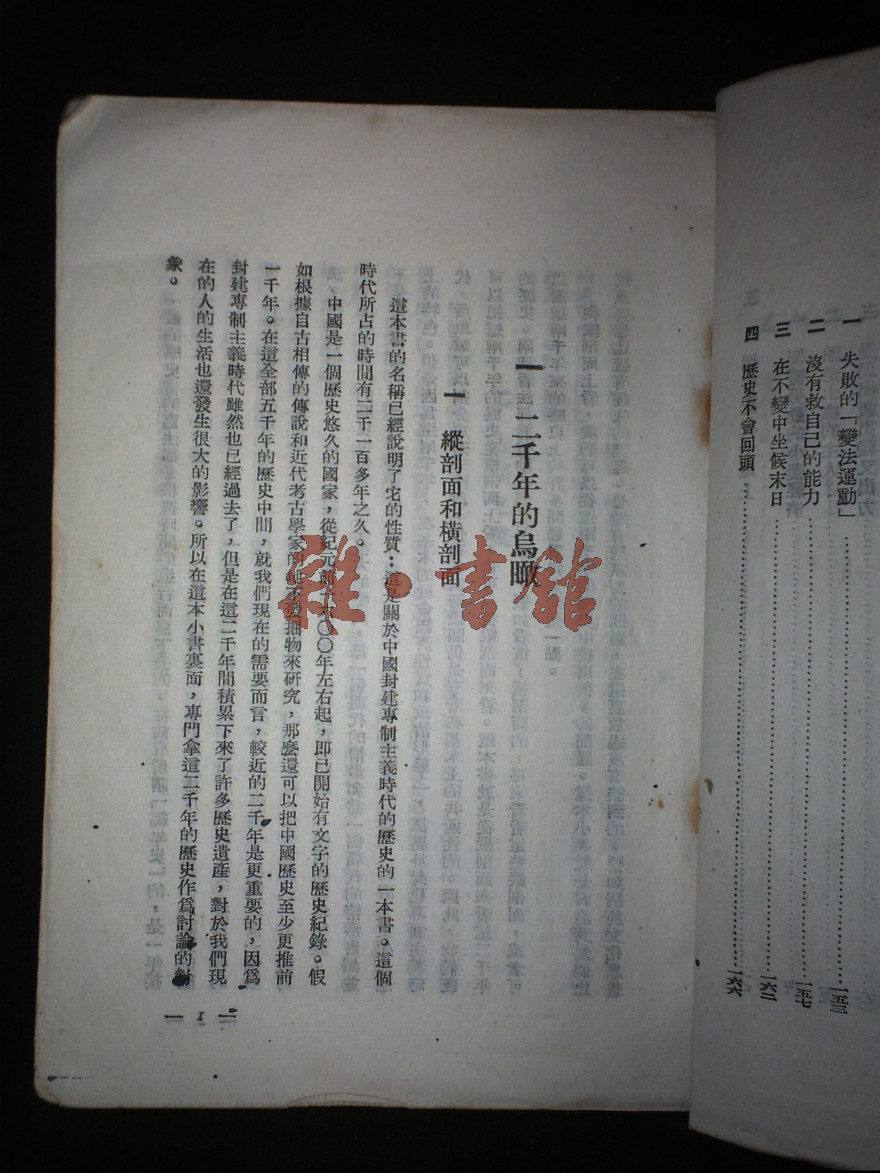 一 失敗的「變法運動」……一五三
二 沒有救自己的能力……一五七
三 在不變中坐候末日……一六二
四 歷史不會回頭……一六六
一 二千年的鳥瞰
一 縱剖面和橫剖面
這本書的名稱已經說明了它的性質:這是關於中國封建專制主義時代的歷史的一本書。這個
時代所占的時間有二千一百多年之久。
中國是一個歷史悠久的國家,從紀元前 〇〇年左右起,即已開始有文字的歷史紀錄。假
如根據自古相傳的傳說和近代考古學家的 掘物來研究,那麼還可以把中國歷史至少更推前
一千年。在這全部五千年的歷史中間,就我們現在的需要而言,較近的二千年是更重要的,因爲
封建專制主義時代雖然也已經過去了,但是在這二千年間積累下來了許多歷史遺產,對於我們現
在的人的生活也還發生很大的影響。所以在這本小書裏面,專門拿這二千年的歷史作爲討論的對
象。
— 1 —
雜·書舘